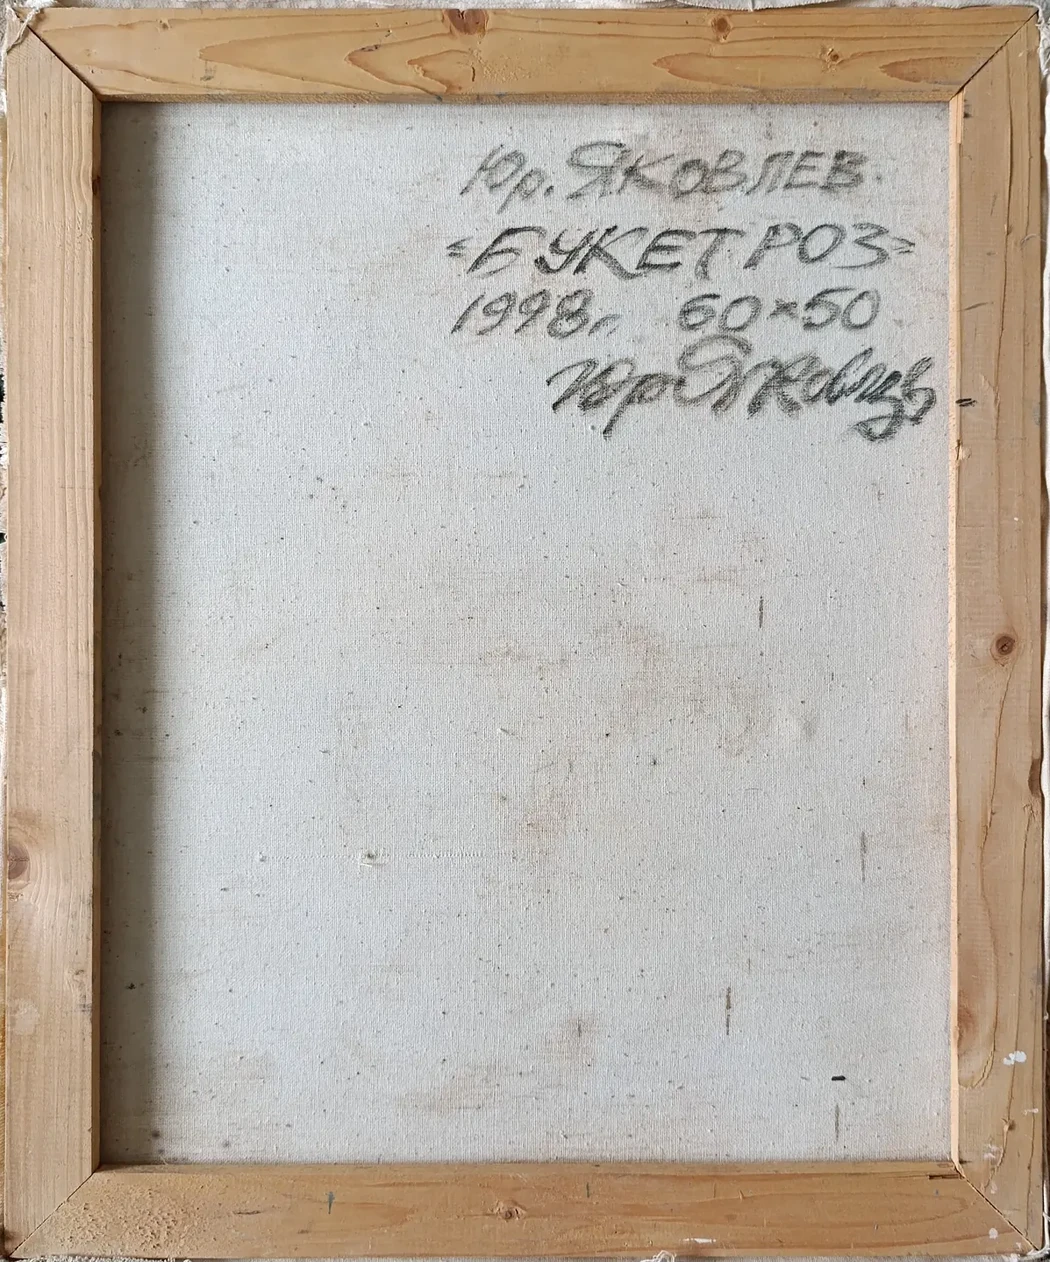 Юр. ЯКОВЛЕВ.
"БУКЕТ РОЗ"
1998г. 60×50
Юр Яковлев